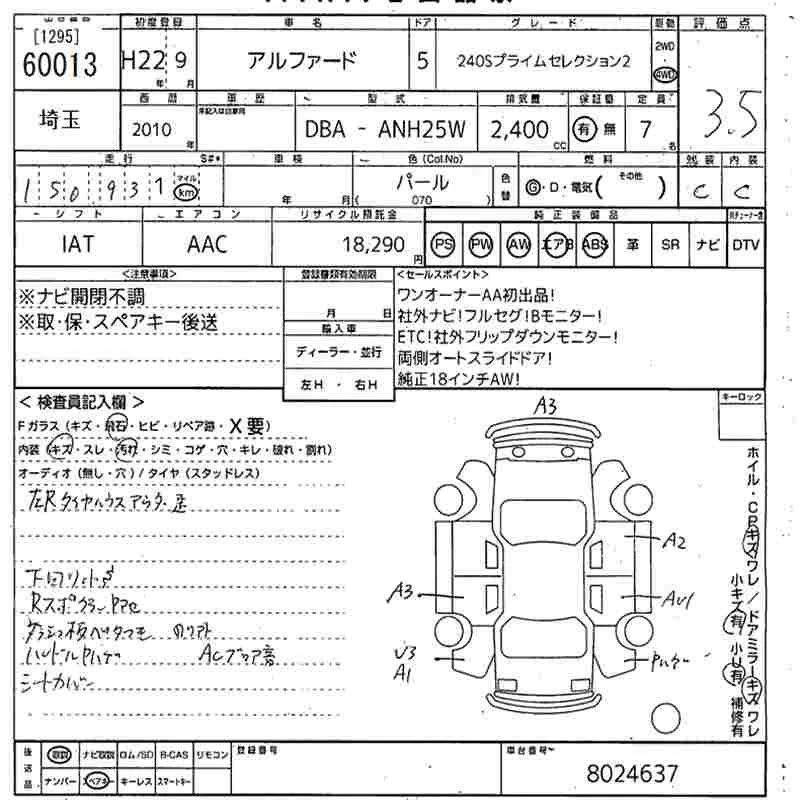 [1295]
60013
初度登録 車名 ドア グレード 駆動 評価点
H22年 9月 アルファード 5 240Sプライムセレクション2 2WD・4WD 3.5
埼玉
西暦 車歴 型式 排気量 保証書 定員
2010年 DBA - ANH25W 2,400 CC 有 無 7名
走行 S#* 車検 色(Col.No) 色替 燃料 外装 内装
150931 マイル km 年 月 パール ( 070 ) G・D・電気( その他 ) C C
シフト エアコン リサイクル預託金 純正装備品
IAT AAC 18,290円 PS PW AW エアB ABS 革 SR ナビ DTV
<注意事項> 登録書類有効期限 <セールスポイント>
※ナビ開閉不調
※取・保・スペアキー後送
月 日
輸入車
ディーラー・並行
左H ・ 右H
ワンオーナーAA初出品!
社外ナビ!フルセグ!Bモニター!
ETC!社外フリップダウンモニター!
両側オートスライドドア!
純正18インチAW!
<検査員記入欄>
Fガラス(キズ・飛石・ヒビ・リペア跡・X要)
内装(キズ・スレ・汚れ・シミ・コゲ・穴・キレ・破れ・割れ)
オーディオ(無し・穴)/タイヤ(スタッドレス)
左Rタイヤハウスアウター
下回り小サビ
シートカバー
A3
A2
A3
AU1
U3
A1
キーロック
ホイル・CPキズワレ/ドアミラーキズワレ
小キズ有 小U有 補修有
後送品 取説 ナビ取説 ロム/SD B-CAS リモコン 登録番号 車台番号
ナンバー スペアキー キーレス スマートキー 8024637